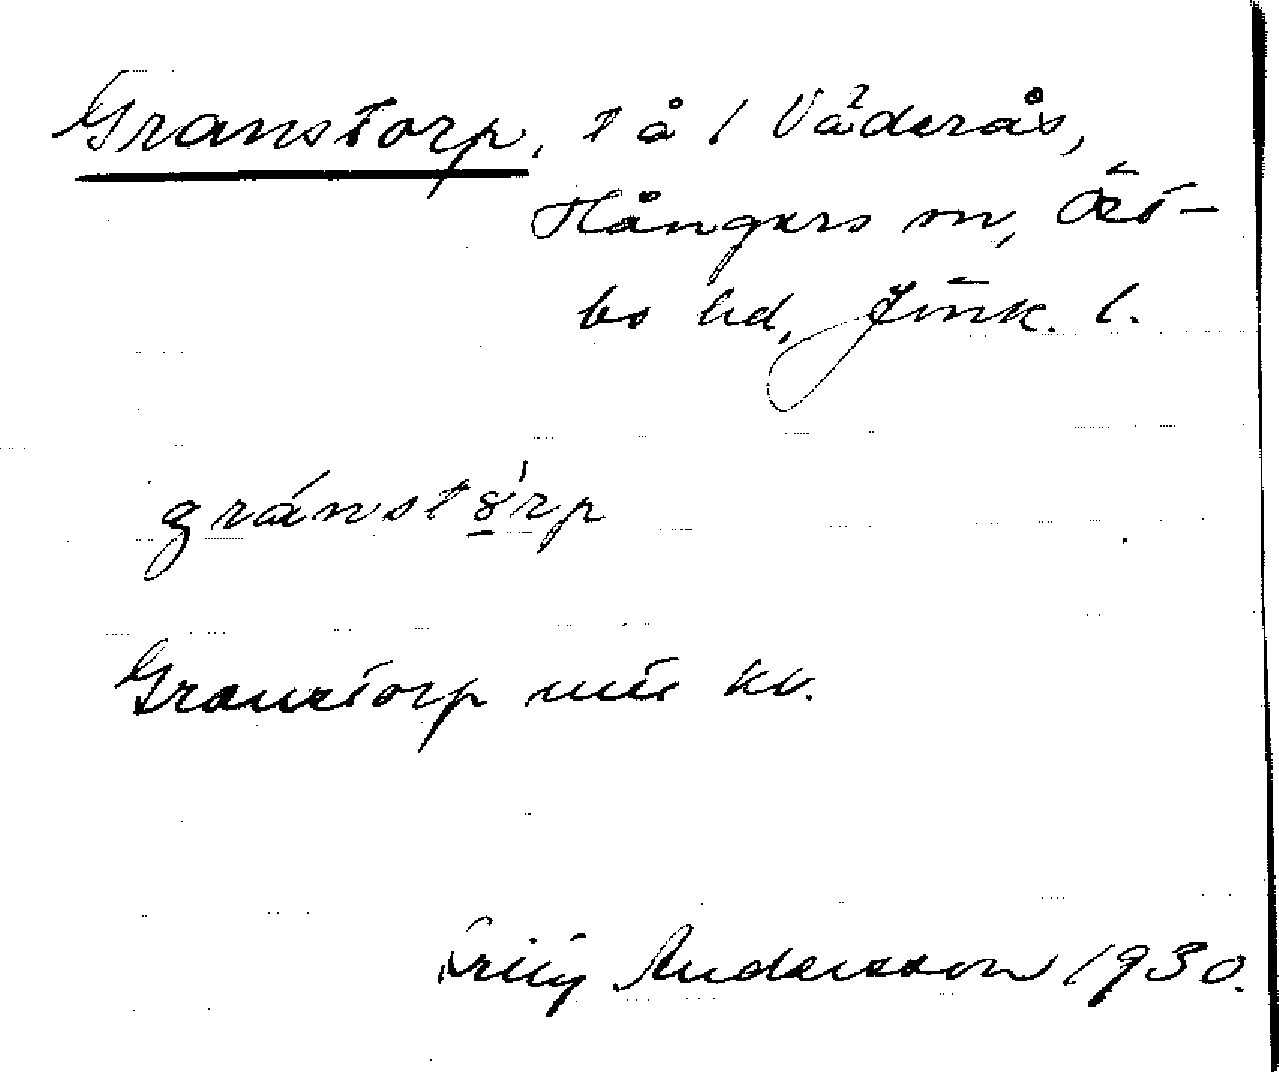 Granstorp, t å 1 Våderås,
Hångers sn, Öst-
bo hd, Jönk. l.
gránstȣ̱̀rp
Granstorp mts kv.
Fritz Andersson 1930.